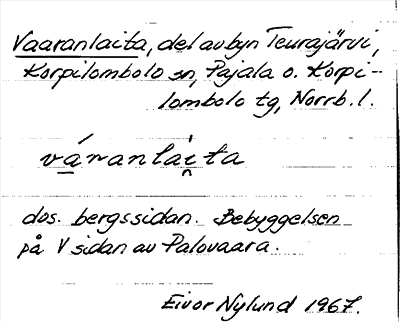 Vaaranlaita, del av byn Teurajärvi,
Korpilombolo sn, Pajala o. Korpi-
lombolo tg, Norrb. l.
váranlai̯ta
dvs. bergssidan. Bebyggelsen
på V sidan av Palovaara.
Eivor Nylund 1967.